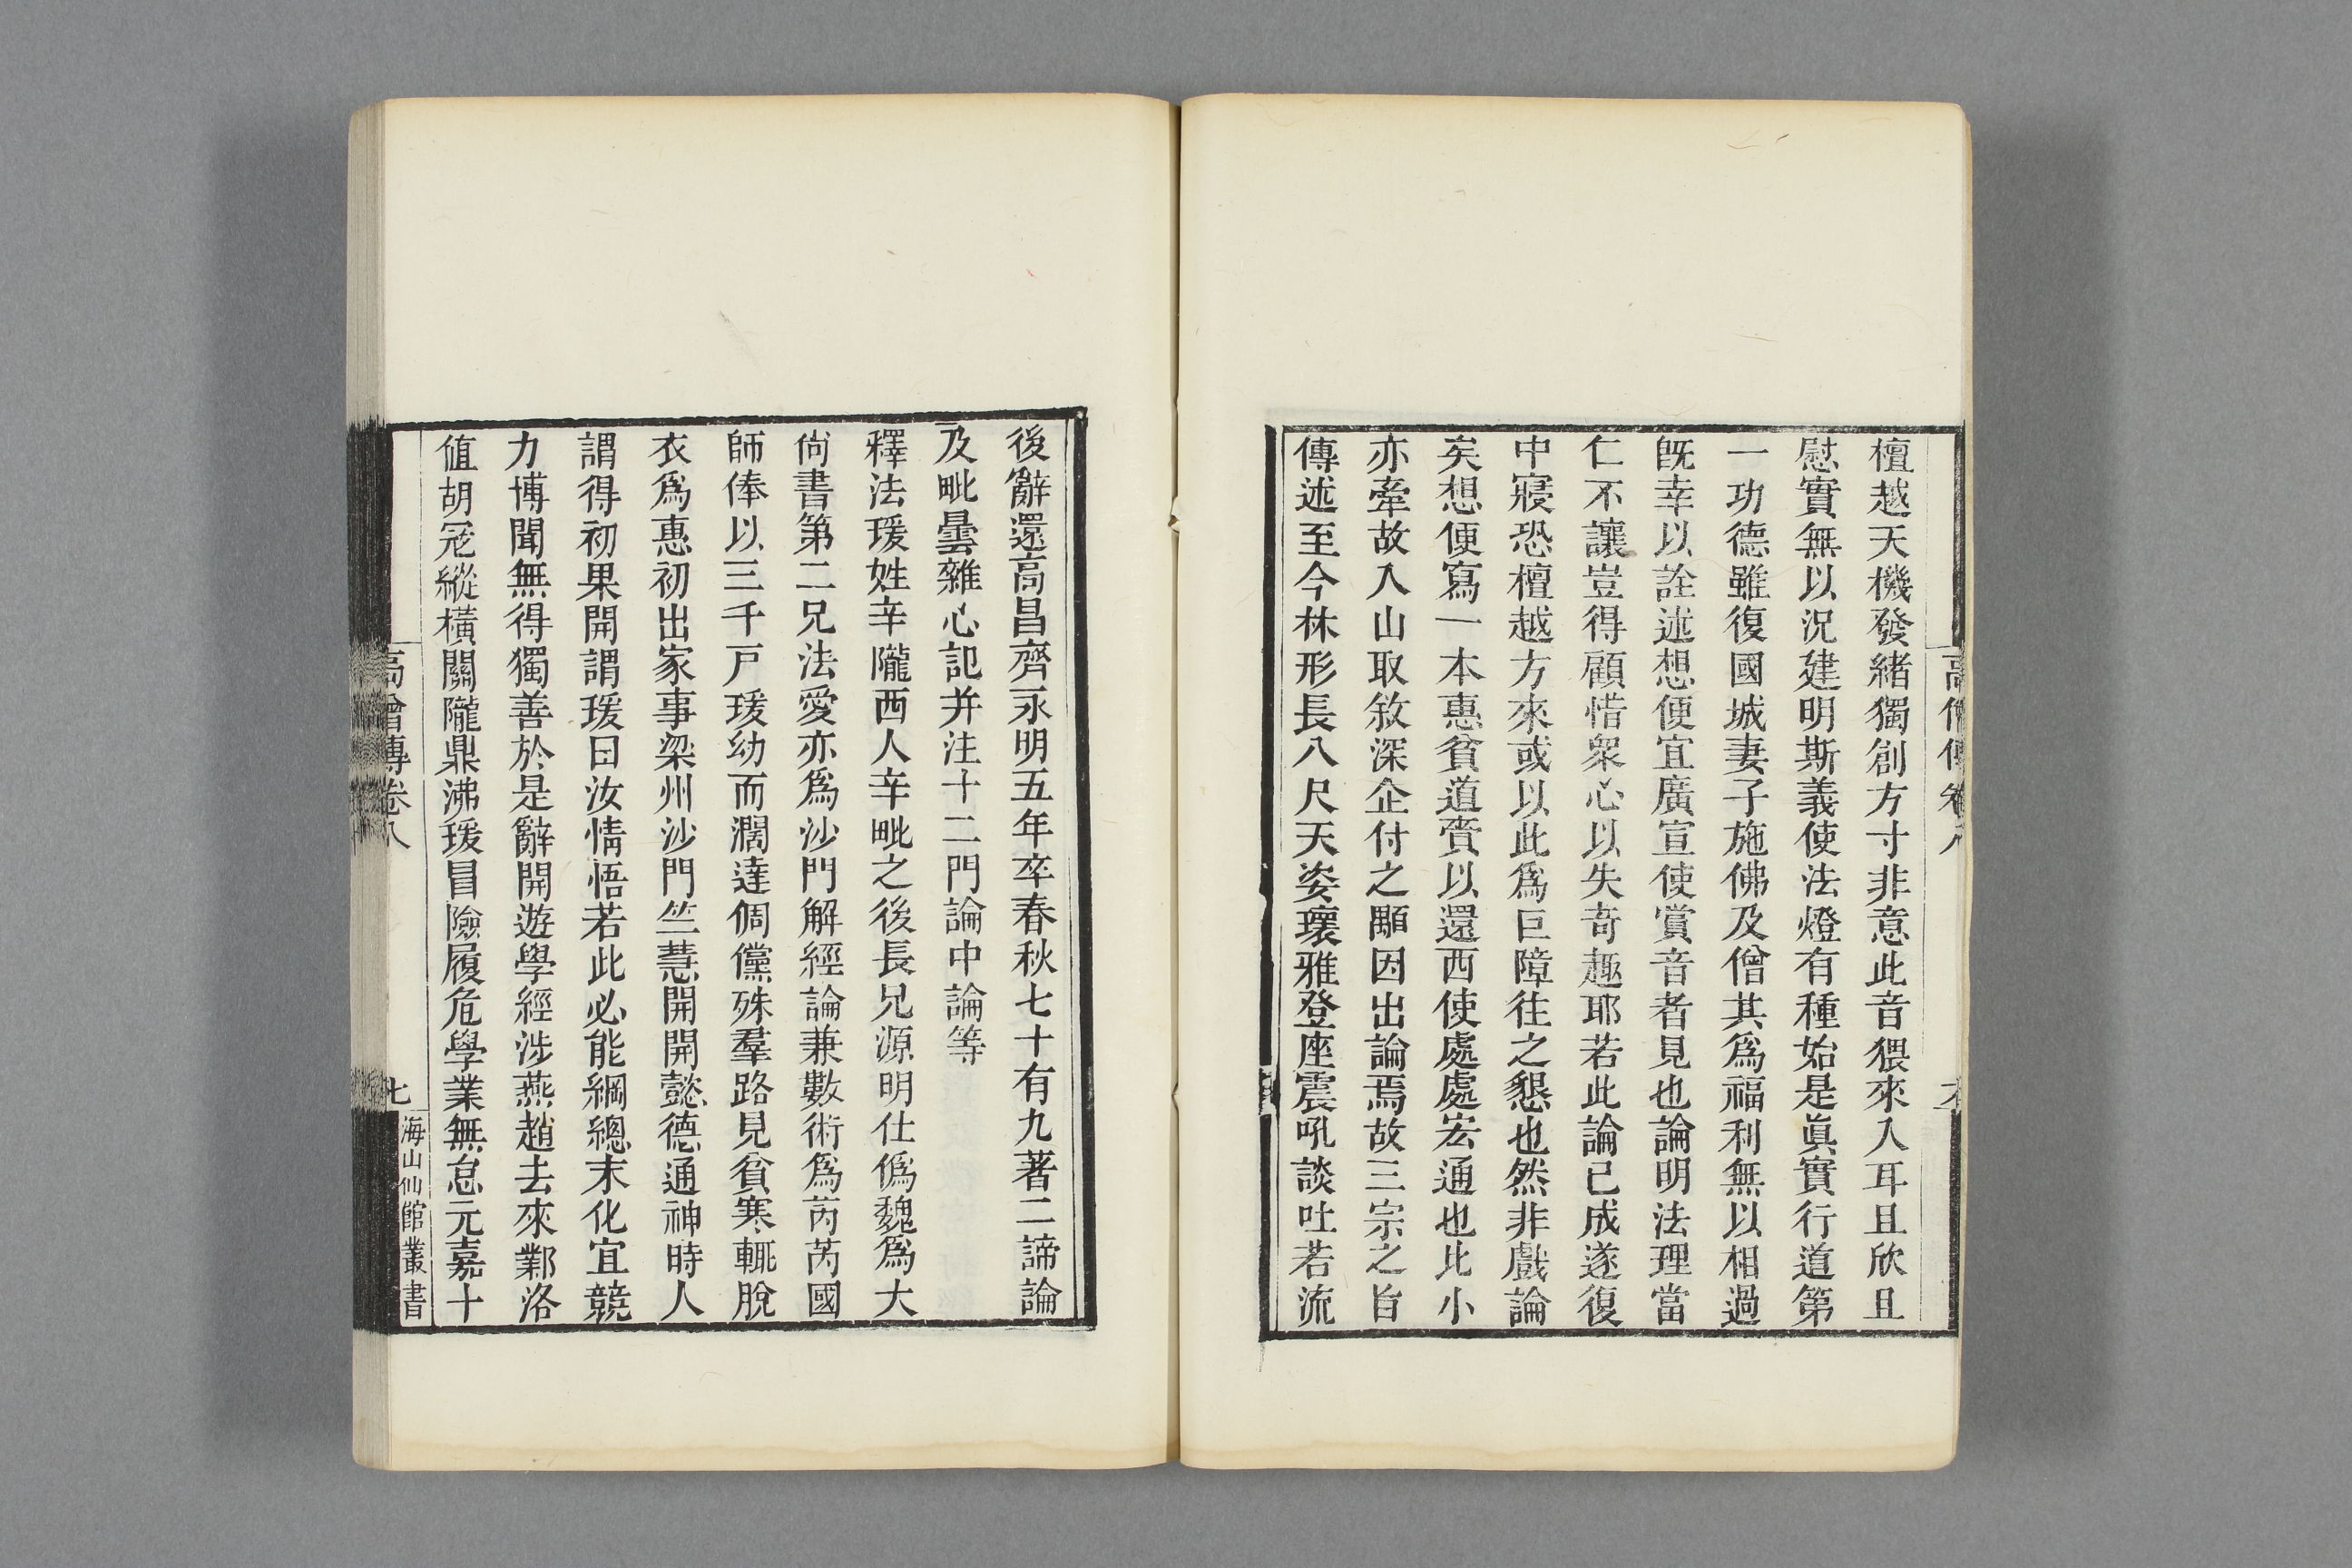 檀越天機發緒獨創方寸非意此音猥來入耳且欣且
慰實無以況建明斯義使法燈有種始是眞實行道第
一功德雖復國城妻子施佛及僧其爲福利無以相過
旣幸以詮述想便宜廣宣使賞音者見也論明法理當
仁不讓豈得顧惜衆心以失奇趣耶若此論已成遂復
中寢恐檀越方來或以此爲巨障往之懇也然非戲論
矣想便寫一本惠貧道賫以還西使處處宏通也比小
亦牽故入山取敘深企付之顒因出論焉故三宗之旨
傳述至今林形長八尺天姿瓌雅登座震吼談吐若流
後辭還高昌齊永明五年卒春秋七十有九著二諦論
及毗曇雜心記并注十二門論中論等
釋法瑗姓辛隴西人辛毗之後長兄源明仕僞魏爲大
尙書第二兄法愛亦爲沙門解經論兼數術爲芮芮國
師俸以三千戸瑗幼而濶達倜儻殊羣路見貧寒輒脫
衣爲惠初出家事梁州沙門竺慧開開懿德通神時人
謂得初果開謂瑗曰汝情悟若此必能綱總末化宜競
力博聞無得獨善於是辭開遊學經涉燕趙去來鄴洛
値胡寇縱橫關隴鼎沸瑗冒險履危學業無怠元嘉十
高僧傳卷八
七
海山仙館叢書